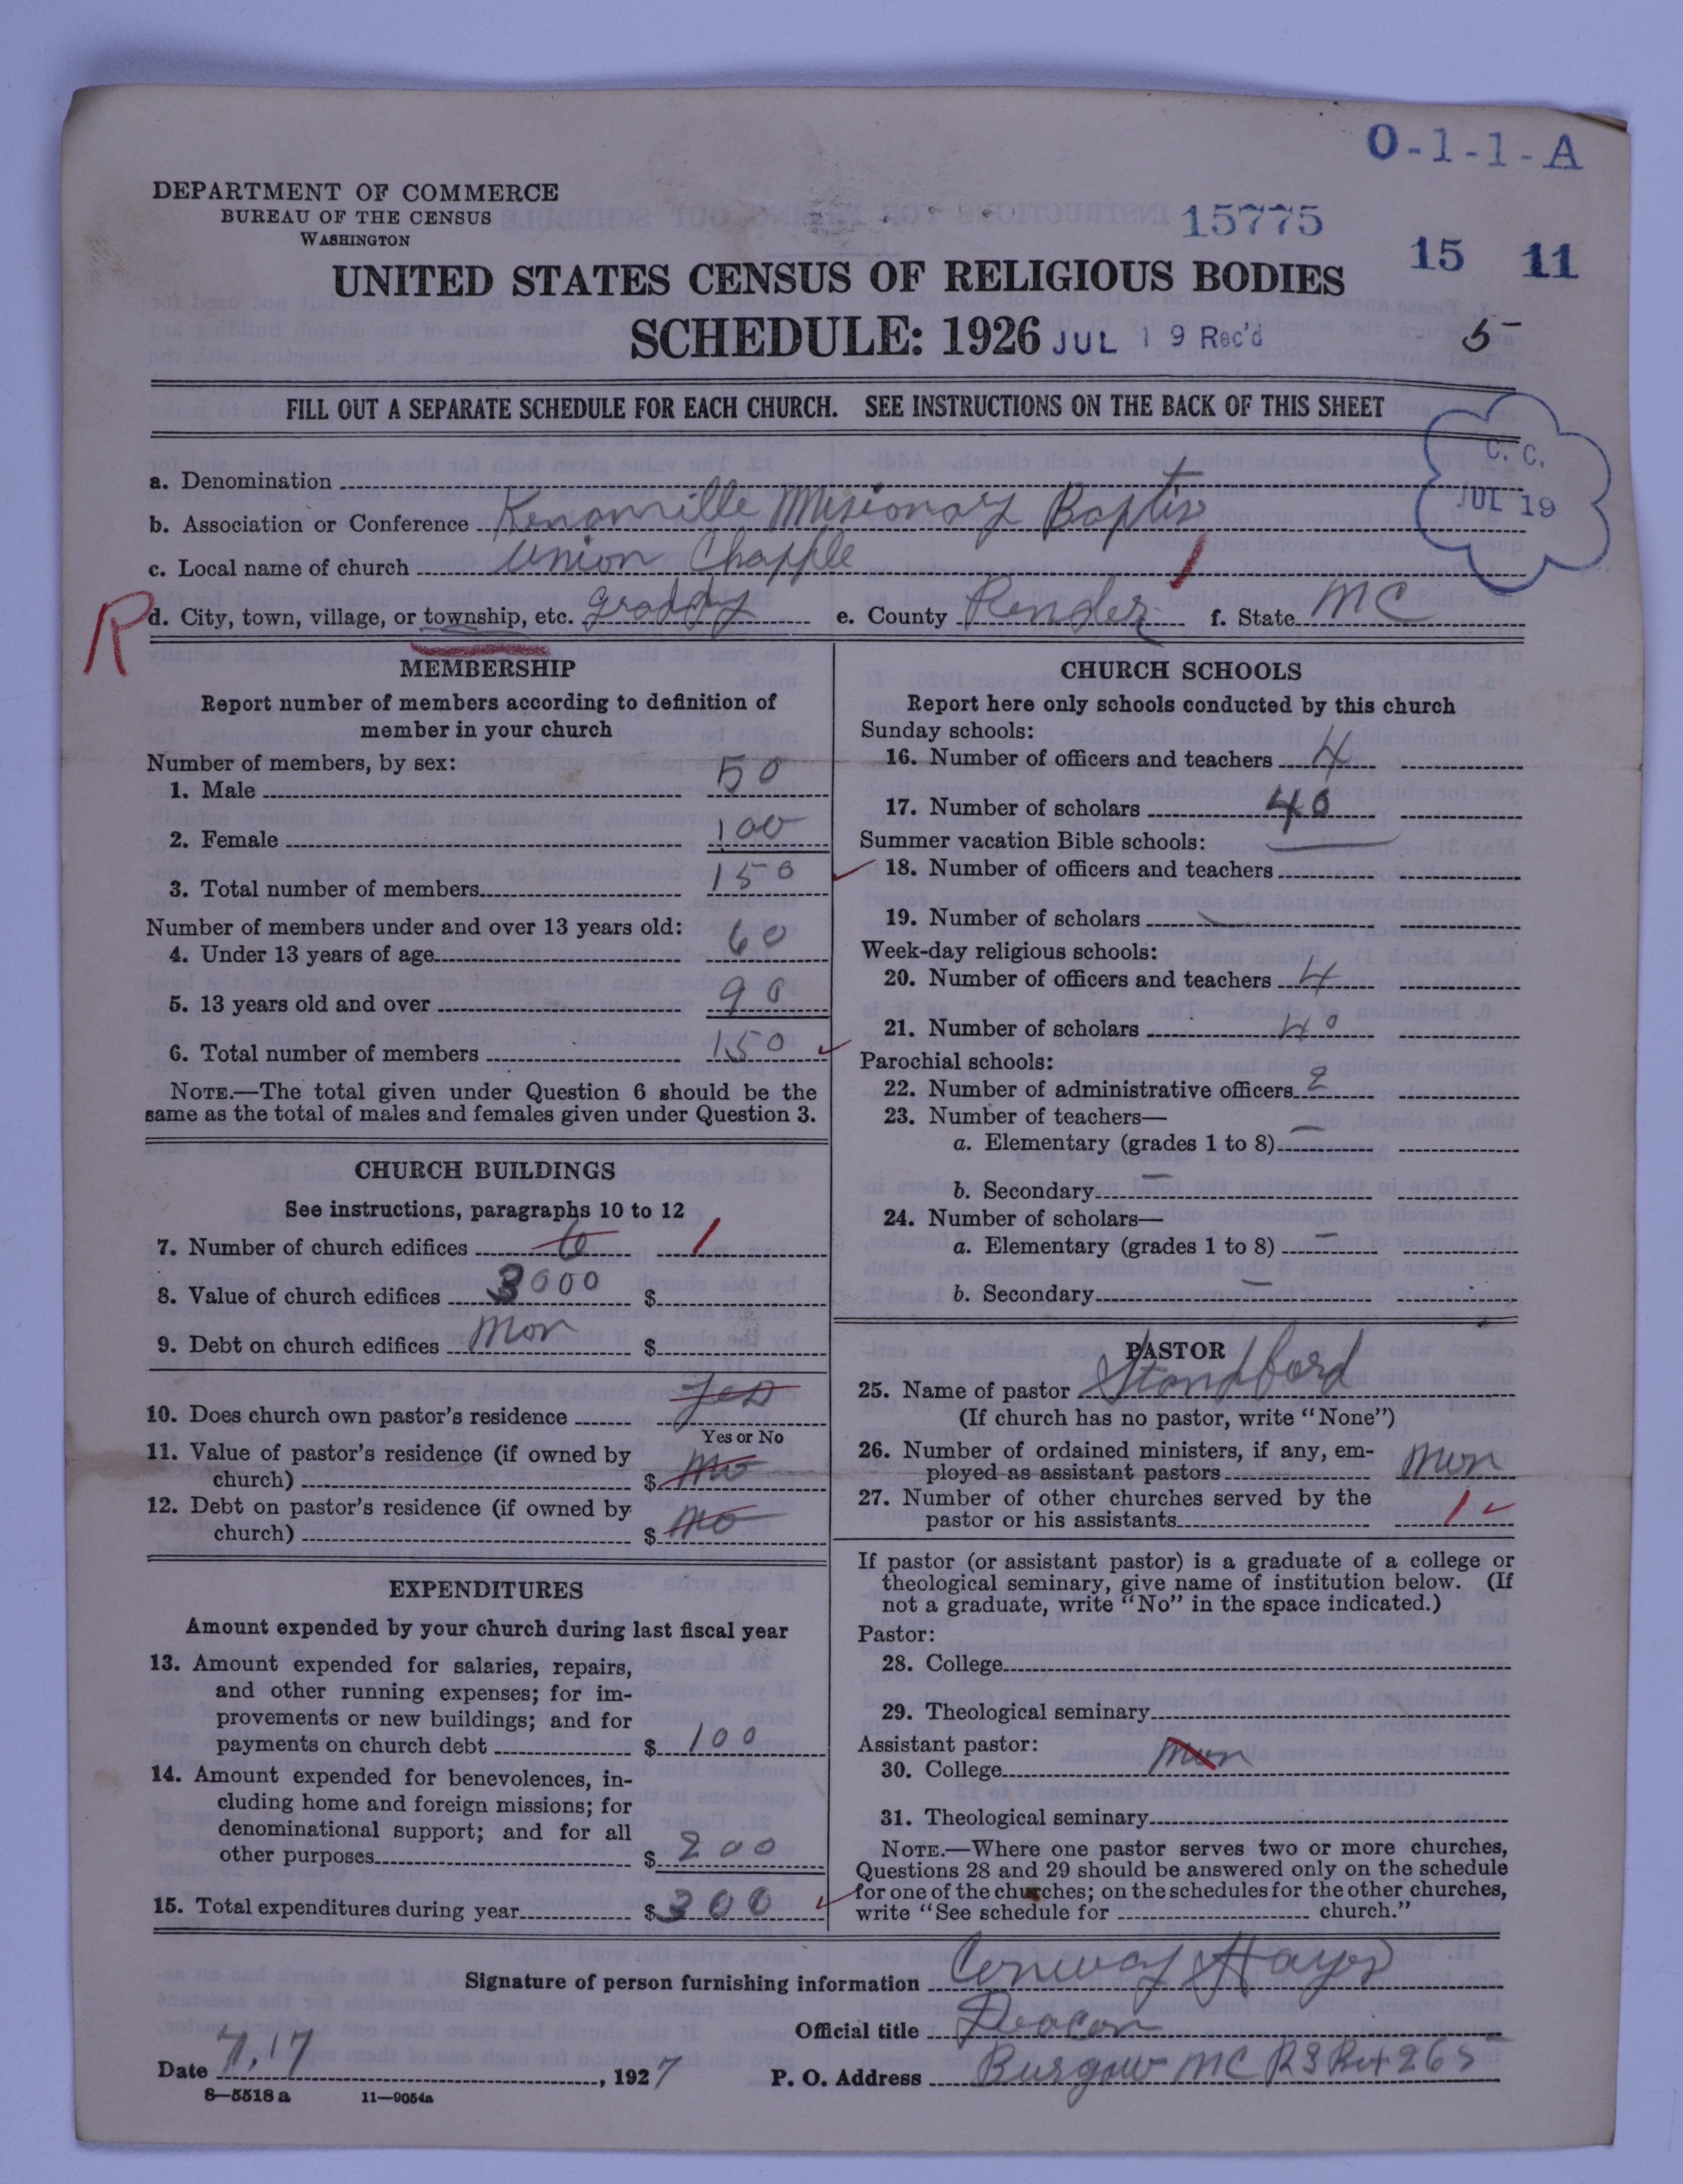 O-1-1-A
DEPARTMENT OF COMMERCE
BUREAU OF THE CENSUS
WASHINGTON
15775
15 11
UNITED STATES CENSUS OF RELIGIOUS BODIES
SCHEDULE: 1926 JUL 19 Rec'd 5
FILL OUT A SEPARATE SCHEDULE FOR EACH CHURCH. SEE INSTRUCTIONS ON THE BACK OF THIS SHEET
C. C.
JUL 19
a. Denomination
b. Association or Conference Kenanville Misionary Baptist
c. Local name of church Union Chapple
R d. City, town, village, or township, etc. Graddy e. County Pender f. State NC
MEMBERSHIP
Report number of members according to definition of
member in your church
Number of members, by sex:
1. Male 50
2. Female 100
3. Total number of members 150
Number of members under and over 13 years old:
4. Under 13 years of age 60
5. 13 years old and over 90
6. Total number of members 150
NOTE.—The total given under Question 6 should be the
same as the total of males and females given under Question 3.
CHURCH BUILDINGS
See instructions, paragraphs 10 to 12
7. Number of church edifices 6 1
8. Value of church edifices 3000 $
9. Debt on church edifices Non $
10. Does church own pastor's residence yes
Yes or No
11. Value of pastor's residence (if owned by
church) $ No
12. Debt on pastor's residence (if owned by
church) $ No
EXPENDITURES
Amount expended by your church during last fiscal year
13. Amount expended for salaries, repairs,
and other running expenses; for im-
provements or new buildings; and for
payments on church debt $ 100
14. Amount expended for benevolences, in-
cluding home and foreign missions; for
denominational support; and for all
other purposes $ 200
15. Total expenditures during year $ 300
CHURCH SCHOOLS
Report here only schools conducted by this church
Sunday schools:
16. Number of officers and teachers 4
17. Number of scholars 40
Summer vacation Bible schools:
18. Number of officers and teachers
19. Number of scholars
Week-day religious schools:
20. Number of officers and teachers 4
21. Number of scholars 40
Parochial schools:
22. Number of administrative officers 2
23. Number of teachers—
a. Elementary (grades 1 to 8) —
b. Secondary —
24. Number of scholars—
a. Elementary (grades 1 to 8) —
b. Secondary —
PASTOR
25. Name of pastor Standford
(If church has no pastor, write "None")
26. Number of ordained ministers, if any, em-
ployed as assistant pastors Non
27. Number of other churches served by the
pastor or his assistants 1
If pastor (or assistant pastor) is a graduate of a college or
theological seminary, give name of institution below. (If
not a graduate, write "No" in the space indicated.)
Pastor:
28. College
29. Theological seminary
Assistant pastor:
30. College Non
31. Theological seminary
NOTE.—Where one pastor serves two or more churches,
Questions 28 and 29 should be answered only on the schedule
for one of the churches; on the schedules for the other churches,
write "See schedule for church."
Signature of person furnishing information Conway Hayes
Official title Deacon
Date 7, 17, 1927 P. O. Address Burgaw NC R3 Box 265
8—5518a 11—9054a